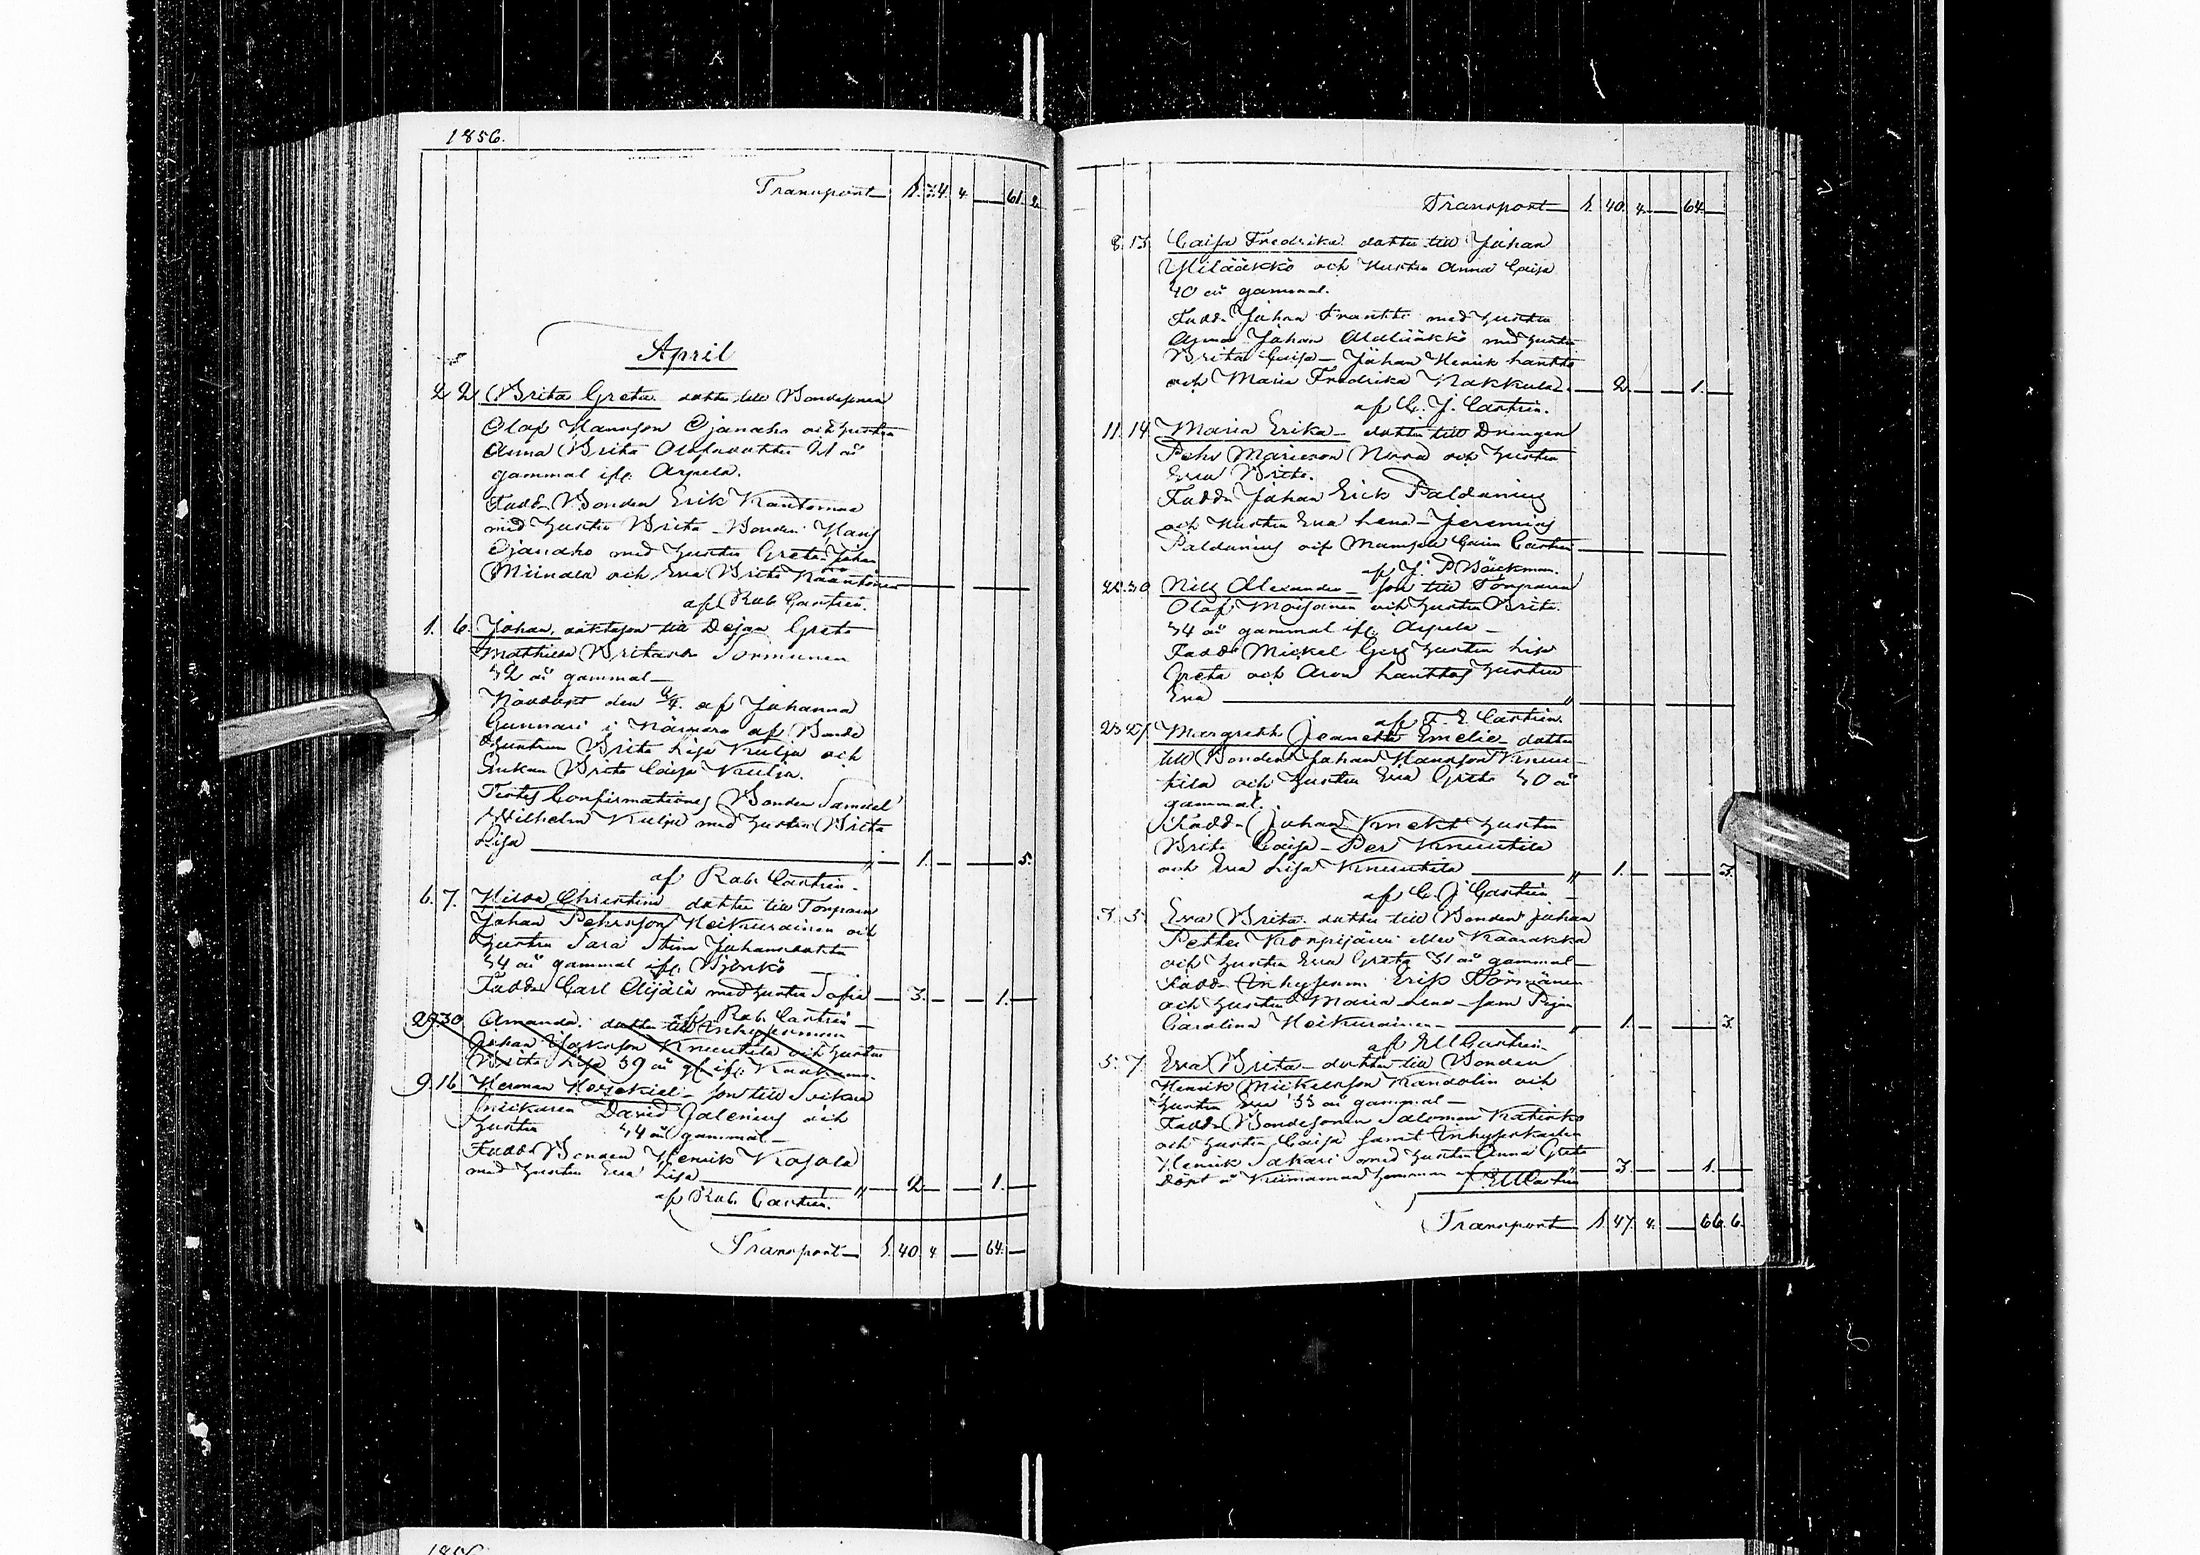 1856.
Transport 1. 4. 61. 2.
April
2 2 Brita Greta dotter till Bondesonen
Olof Hansson Ojanaho och hustru
Anna Brita Olofsdotter 21 år
gammal ifr. Arpela.
Fadd. Bonden Erik Kantomaa
med hustru Brita - Bonden Hans
Ojanaho med hustru Greta Johan
Miinala och Eva Brita
af Rob. Castrén.
1. 6. Johan, oäkta son till Dejan Greta
Mathilda Britasdr Sormunen
32 år gammal
Nöddöpt den af Johanna
Gunnari i Närvaro af Bonde
hustrun Brita Lisa Kulja och
Enkan Brita Caisa Kulja.
Testes Confirmationes Bonden Samuel
Wilhelm Kulju med hustru Brita
Lisa " 1. 5.
af Rob. Castrén.
6. 7. Hilda Christina dotter till Torparen
Johan Pehrsson Heikurainen och
hustru Sara Stina Johansdotter
34 år gammal ifr. Björkö
Fadd. Carl Äijälä med hustru Sofia 3. 1.
af Rob. Castrén
29. 30. Amanda. dotter till Inhysesman
Johan Knuutila och hustru
Brita Lisa 39 år gl. ifr. Kaakamo.
9. 16. Herman Hesekiel son till Snickare
David Galenius och
hustru 34 år gammal
Fadd. Bonden Henrik Kojola
med hustru Eva Lisa " 2 1.
af Rob. Castrén.
Transport 1. 40. 4. 64.
Transport 1. 40. 4. 64
8. 13. Caisa Fredrika dotter till Johan
Yliääkkö och Hustru Anna Caisa
40 år gammal.
Fadd. Johan Frantti med hustru
Anna Johan Alaliääkkö med hustru
Brita Caisa - Johan Henrik Lantto
och Maria Fredrika Nakkula 2. 1.
af C. J. Castrén.
11. 14. Maria Erika dotter till Drängen
Pehr Mariesson och hustru
Eva Brita.
Fadd. Johan Erick Paldanius
och Hustru Eva Lena - Jeremias
Paldanius och Mamsell Castrén
af J. P. Bäckman.
30. Nils Alexander son till Torparen
Olof Moisanen och hustru Brita
34 år gammal ifr. Arpela
Fadd. Mickel hustru Lisa
Greta och Aron Lanttos hustru
Eva "
af F. E. Castrén.
25 27. Margreth Jeanette Emelie dotter
till Bonden Johan Hansson Knuu-
tila och hustru Eva Greta 30 år
gammal.
Fadd. Johan Knekt hustru
Brita Caisa - Per Knuutila
och Eva Lisa Knuutila " 1. 3.
af C. J. Castrén
3. 5. Eva Brita dotter till Bonden Johan
Petter Kompijärvi eller Kaarakka
och hustru Eva Greta 31 år gammal
Fadd. Inhysesm. Erik Törmänen
och hustru Maria Lena - samt Pigan
Carolina Heikurainen " 1. 3.
af Castrén
5. 7. Eva Brita dotter till Bonden
Henrik Mickelsson Kandolin och
hustru Eva 33 år gammal
Fadd. Bondesonen Salomon
och hustru Caisa samt Inhyseskarlen
Henrik Sakari med hustru Anna Greta 3. 1.
Döpt å Kiimamaa hemman af Castrén
Transport 1. 47. 4. 66. 6.